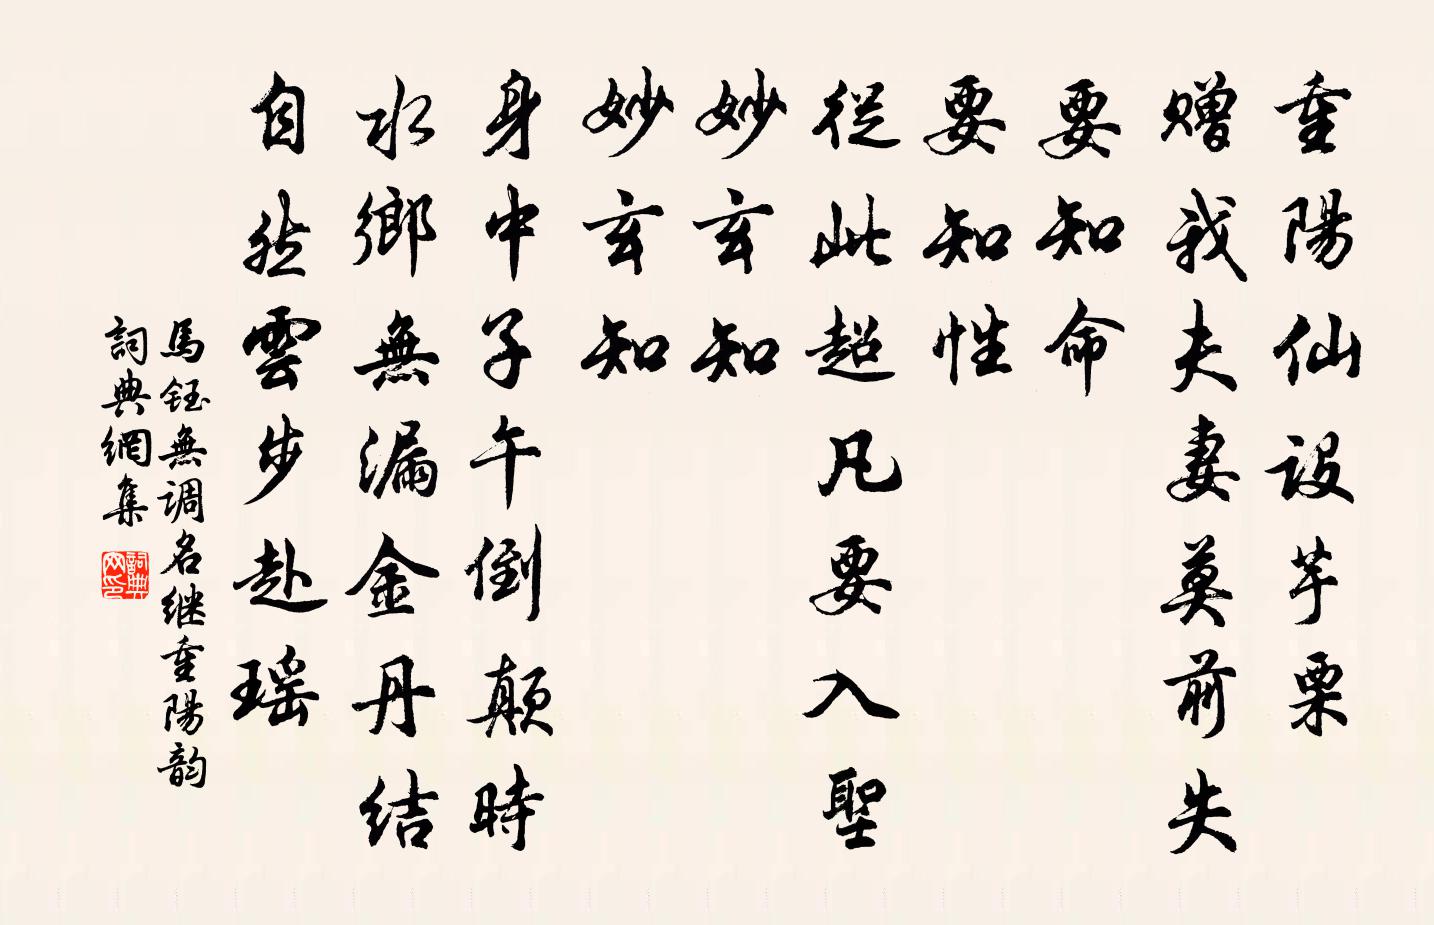 重陽仙設芋栗
贈我夫妻莫前失
要知命
要知性
從此超凡要入聖
妙玄知
妙玄知
身中子午倒顛時
水鄉無漏金丹結
自然雲步赴瑶
馬鈺無調名继重陽韵
詞典網集
詞典网印